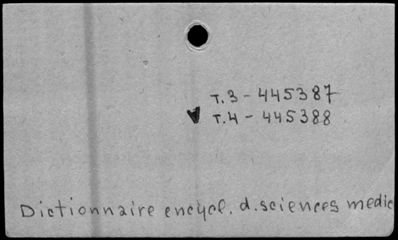 т.3 - 445387
т.4 - 445388
Dictionnaire encycl. d. sciences medic